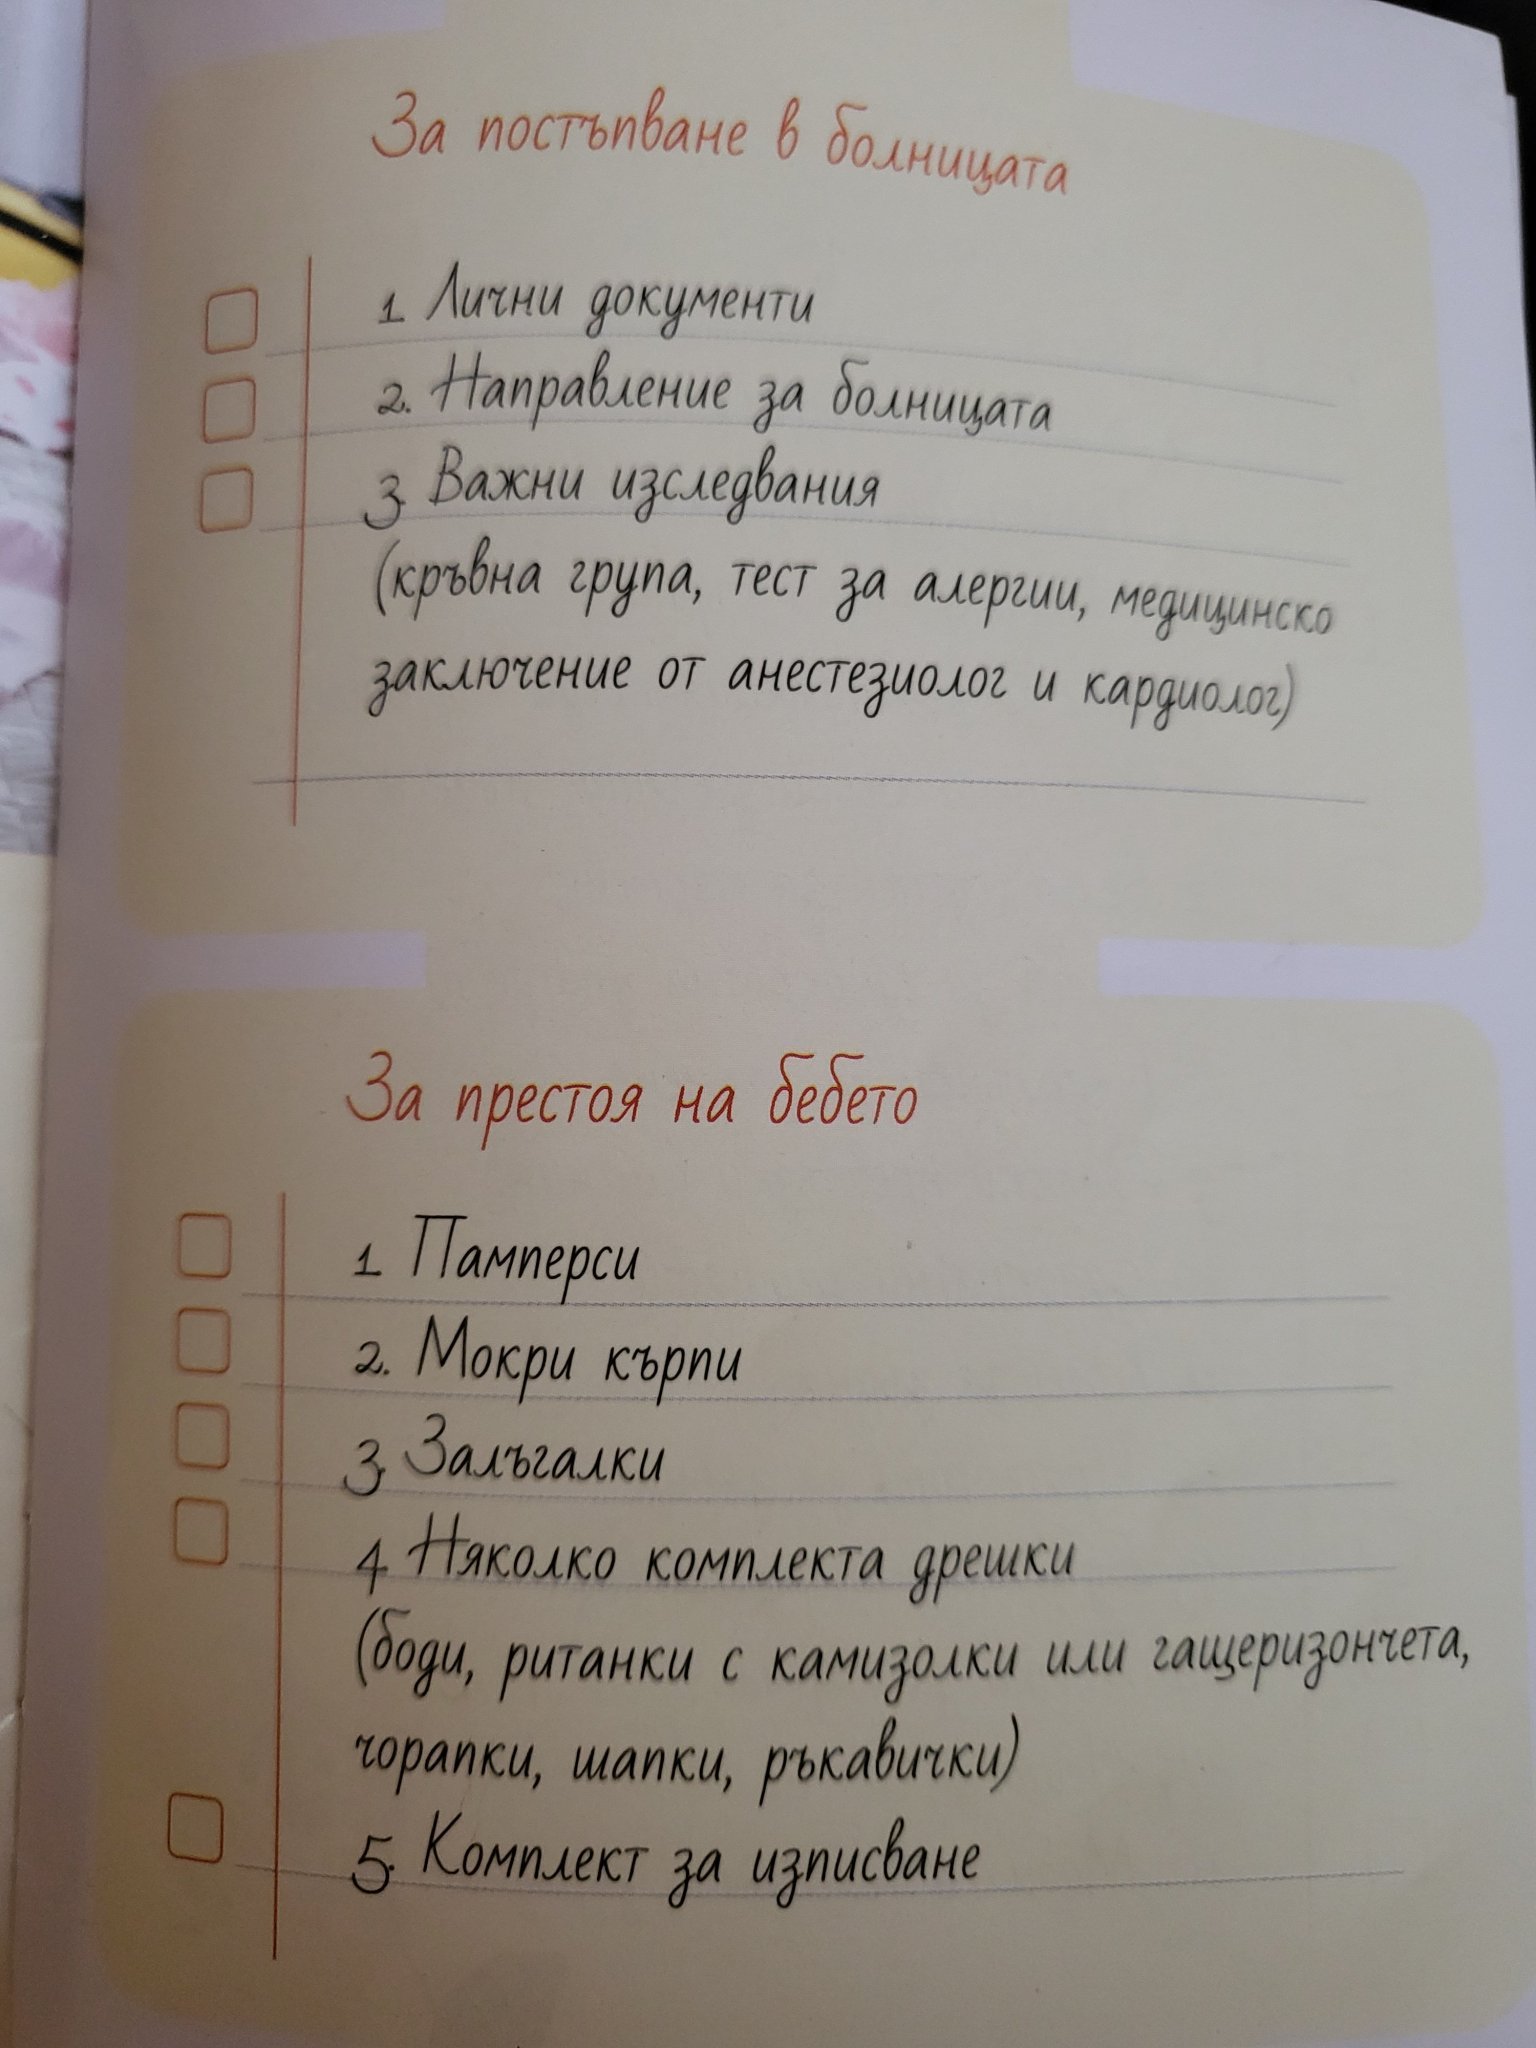 За постъпване в болницата
1. Лични документи
2. Направление за болницата
3. Важни изследвания
(кръвна група, тест за алергии, медицинско
заключение от анестезиолог и кардиолог)
За престоя на бебето
1. Памперси
2. Мокри кърпи
3. Залъгалки
4. Няколко комплекта дрешки
(боди, ританки с камизолки или гащеризончета,
чорапки, шапки, ръкавички)
5. Комплект за изписване